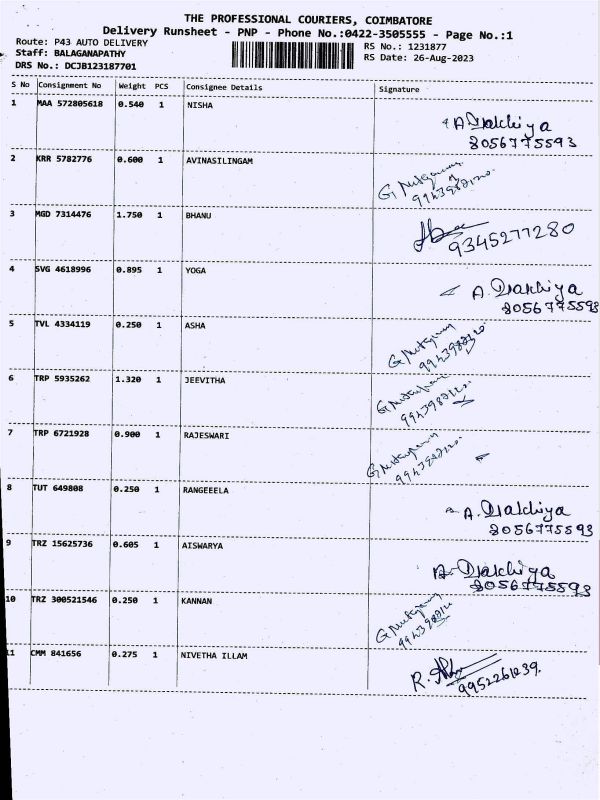 THE PROFESSIONAL COURIERS, COIMBATORE
Delivery Runsheet - PNP - Phone No.:0422-3505555 - Page No.:1
Route: P43 AUTO DELIVERY
Staff: BALAGANAPATHY
DRS No.: DCJB123187701
RS No.: 1231877
RS Date: 26-Aug-2023
S No Consignment No Weight PCS Consignee Details Signature
1 MAA 572805618 0.540 1 NISHA
8056775593
2 KRR 5782776 0.600 1 AVINASILINGAM
3 MGD 7314476 1.750 1 BHANU
9345277280
4 SVG 4618996 0.895 1 YOGA
8056775593
5 TVL 4334119 0.250 1 ASHA
6 TRP 5935262 1.320 1 JEEVITHA
7 TRP 6721928 0.900 1 RAJESWARI
8 TUT 649808 0.250 1 RANGEEELA
8056775593
9 TRZ 15625736 0.605 1 AISWARYA
8056775593
10 TRZ 300521546 0.250 1 KANNAN
11 CMM 841656 0.275 1 NIVETHA ILLAM